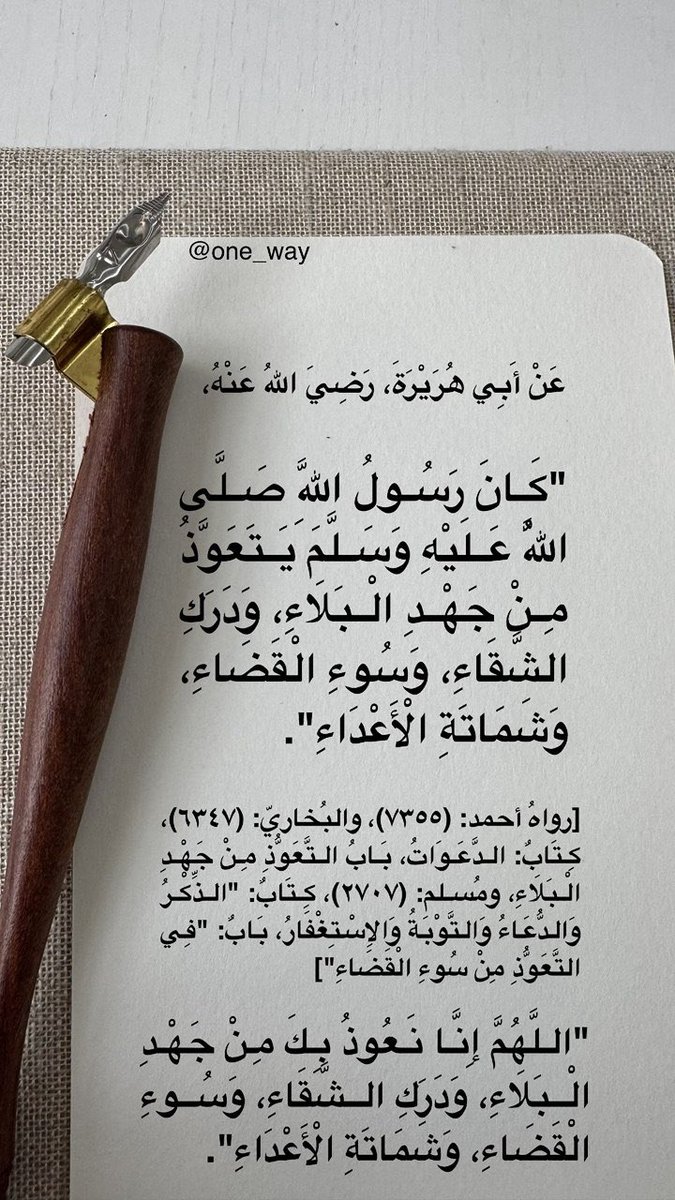 @one_way
عَنْ أَبِي هُرَيْرَةَ، رَضِيَ اللهُ عَنْهُ،
"كَانَ رَسُولُ اللهَِّ صَلَّى
اللهُ عَلَيْهِ وَسَلَّمَ يَتَعَوَّذُ
مِنْ جَهْدِ الْبَلَاءِ، وَدَرَكِ
الشَّقَاءِ، وَسُوءِ الْقَضَاءِ،
وَشَمَاتَةِ الْأَعْدَاءِ".
[رواهُ أحمد: (٧٣٥٥)، والبُخاريّ: (٦٣٤٧)،
كِتَابٌ: الدَّعَوَاتُ، بَابُ التَّعَوُّذِ مِنْ جَهْدِ
الْبَلَاءِ، ومُسلم: (٢٧٠٧)، كِتَابٌ: "الذِّكْرُ
وَالدُّعَاءُ وَالتَّوْبَةُ وَالِاسْتِغْفَارُ، بَابٌ: "فِي
التَّعَوُّذِ مِنْ سُوءِ الْقَضَاءِ"]
"اللَّهُمَّ إِنَّا نَعُوذُ بِكَ مِنْ جَهْدِ
الْبَلَاءِ، وَدَرَكِ الشَّقَاءِ، وَسُوءِ
الْقَضَاءِ، وَشَمَاتَةِ الْأَعْدَاءِ".